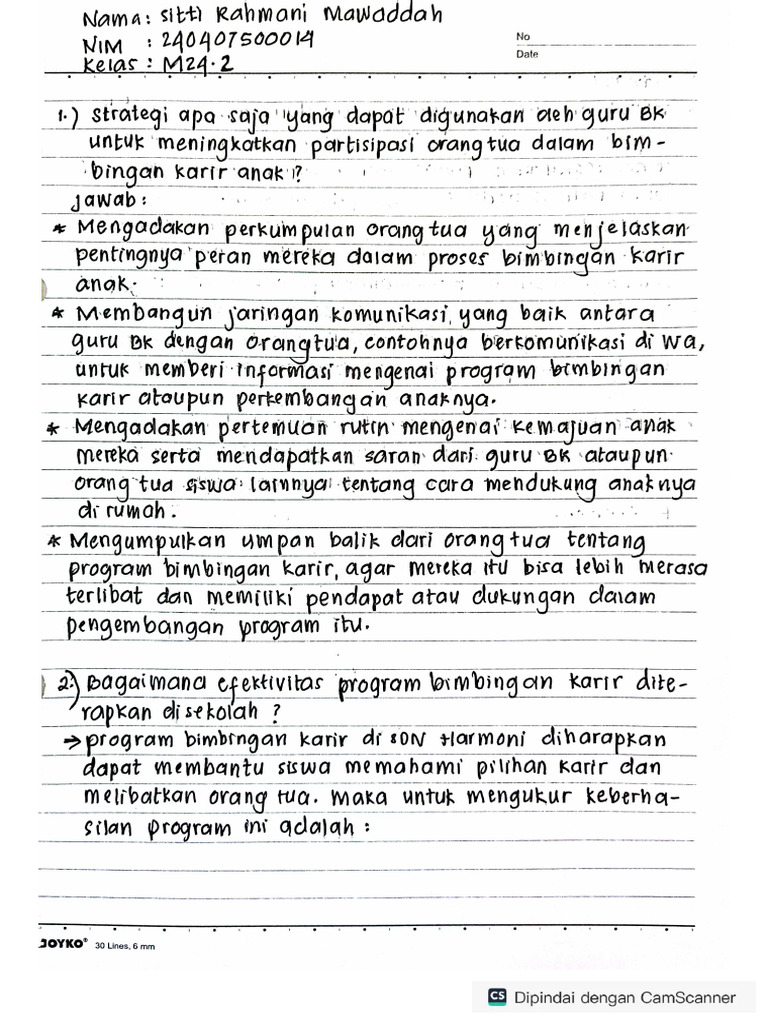 Nama: Sitti Rahmani Mawaddah
NIM : 240407500014
Kelas : M24.2
No
Date
1.) Strategi apa saja yang dapat digunakan oleh guru BK
untuk meningkatkan partisipasi orang tua dalam bim-
bingan karir anak?
Jawab:
* Mengadakan perkumpulan orang tua yang menjelaskan
pentingnya peran mereka dalam proses bimbingan karir
anak.
* Membangun jaringan komunikasi yang baik antara
guru BK dengan orangtua, contohnya berkomunikasi di WA,
untuk memberi informasi mengenai program bimbingan
karir ataupun perkembangan anaknya.
* Mengadakan pertemuan rutin mengenai kemajuan anak
mereka serta mendapatkan saran dari guru BK ataupun
orang tua siswa lainnya tentang cara mendukung anaknya
di rumah.
* Mengumpulkan umpan balik dari orang tua tentang
program bimbingan karir, agar mereka itu bisa lebih merasa
terlibat dan memiliki pendapat atau dukungan dalam
pengembangan program itu.
2.) Bagaimana efektivitas program bimbingan karir dite-
rapkan di sekolah ?
→ program bimbingan karir di SDN Harmoni diharapkan
dapat membantu siswa memahami pilihan karir dan
melibatkan orang tua. Maka untuk mengukur keberha-
silan program ini adalah :
JOYKO® 30 Lines, 6 mm
CS Dipindai dengan CamScanner